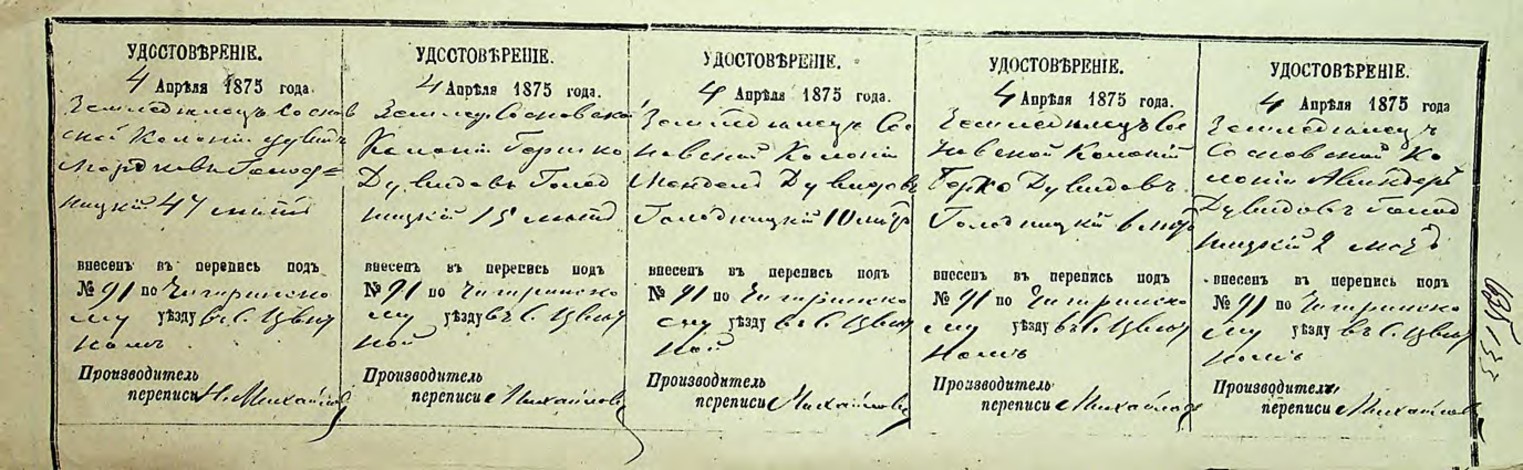 УДОСТОВѢРЕНІЕ.
4 Апрѣля 1875 года.
Земледѣлецъ Соснов
ской Колоніи Дувидъ
Мордковъ Голод=
ницкій 47 лѣтъ
внесенъ въ перепись подъ
№ 91 по Чигиринско
му уѣзду въ С. Цвѣт
номъ
Производитель
переписи Н. Михайлов
УДОСТОВѢРЕНІЕ.
4 Апрѣля 1875 года.
Землед. Сосновской
Колоніи Гершко
Дувидовъ Голод
ницкій 15 лѣтъ
внесенъ въ перепись подъ
№ 91 по Чигиринско
му уѣзду въ С. Цвѣт
ной
Производитель
переписи Михайловъ
УДОСТОВѢРЕНІЕ.
4 Апрѣля 1875 года.
Земледѣлецъ Со
новской Колоніи
Мендель Дувидовъ
Голодницкій 10 лѣтъ
внесенъ въ перепись подъ
№ 91 по Чигиринско
му уѣзду въ С. Цвѣт
ной
Производитель
переписи Михайловъ
УДОСТОВѢРЕНІЕ.
4 Апрѣля 1875 года.
Земледѣлецъ Сос
новской Колоніи
Берко Дувидовъ
Голодницкій 6 лѣтъ
внесенъ въ перепись подъ
№ 91 по Чигиринско
му уѣзду въ С. Цвѣт
номъ
Производитель
переписи Михайлов
УДОСТОВѢРЕНІЕ.
4 Апрѣля 1875 года
Земледѣлецъ
Сосновской Ко
лоніи
Дувидовъ Голод
ницкій 2 лѣтъ
внесенъ въ перепись подъ
№ 91 по Чигиринско
му уѣзду въ С. Цвѣт
номъ
Производитель
переписи Михайлов